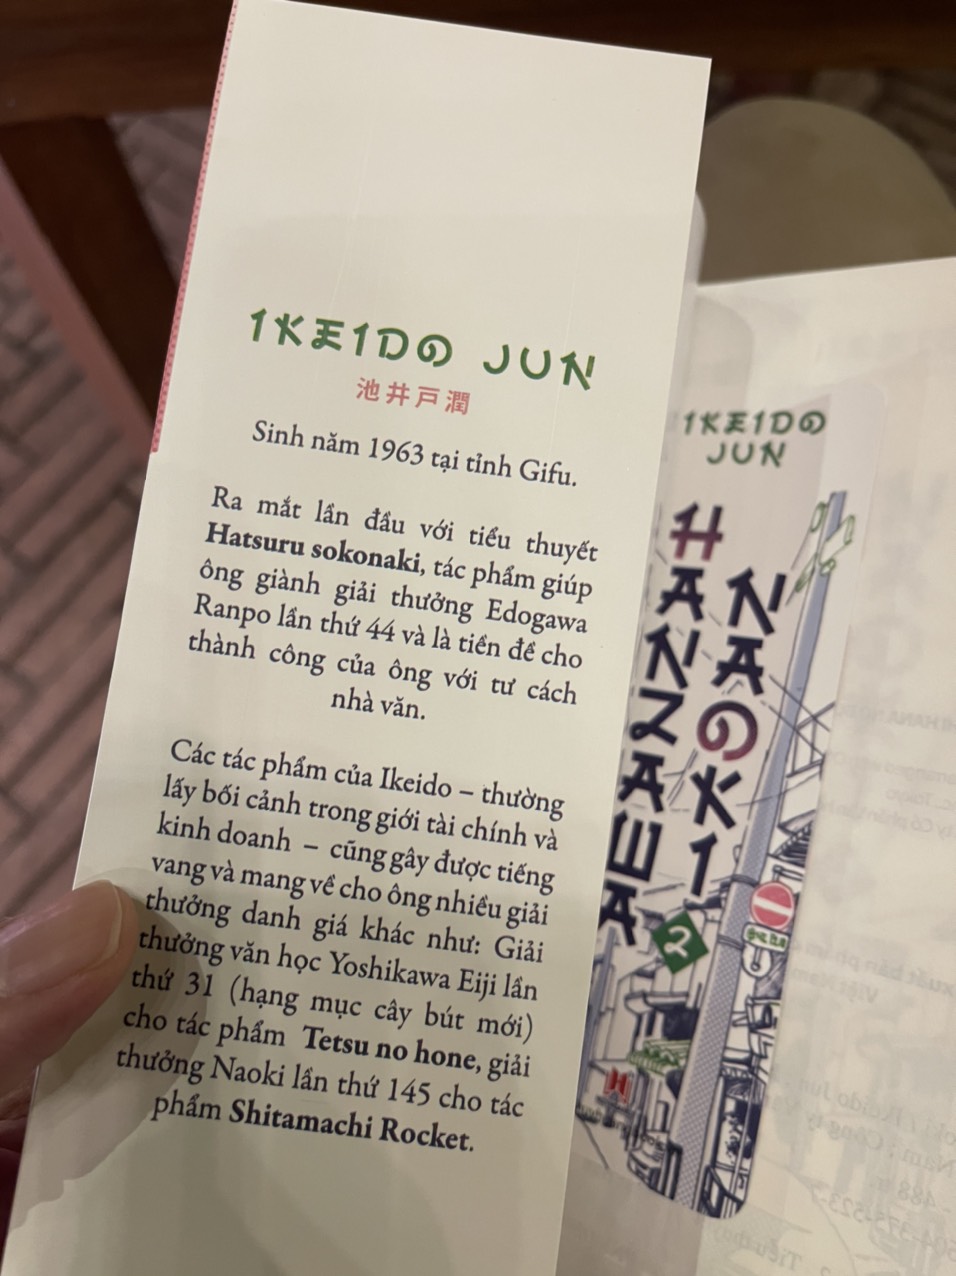 IKEIDO JUN
池井戸潤
Sinh năm 1963 tại tỉnh Gifu.
Ra mắt lần đầu với tiểu thuyết
Hatsuru sokonaki, tác phẩm giúp
ông giành giải thưởng Edogawa
Ranpo lần thứ 44 và là tiền đề cho
thành công của ông với tư cách
nhà văn.
Các tác phẩm của Ikeido – thường
lấy bối cảnh trong giới tài chính và
kinh doanh – cũng gây được tiếng
vang và mang về cho ông nhiều giải
thưởng danh giá khác như: Giải
thưởng văn học Yoshikawa Eiji lần
thứ 31 (hạng mục cây bút mới)
cho tác phẩm Tetsu no hone, giải
thưởng Naoki lần thứ 145 cho tác
phẩm Shitamachi Rocket.
IKEIDO
JUN
HANZAWA
NAOKI
2